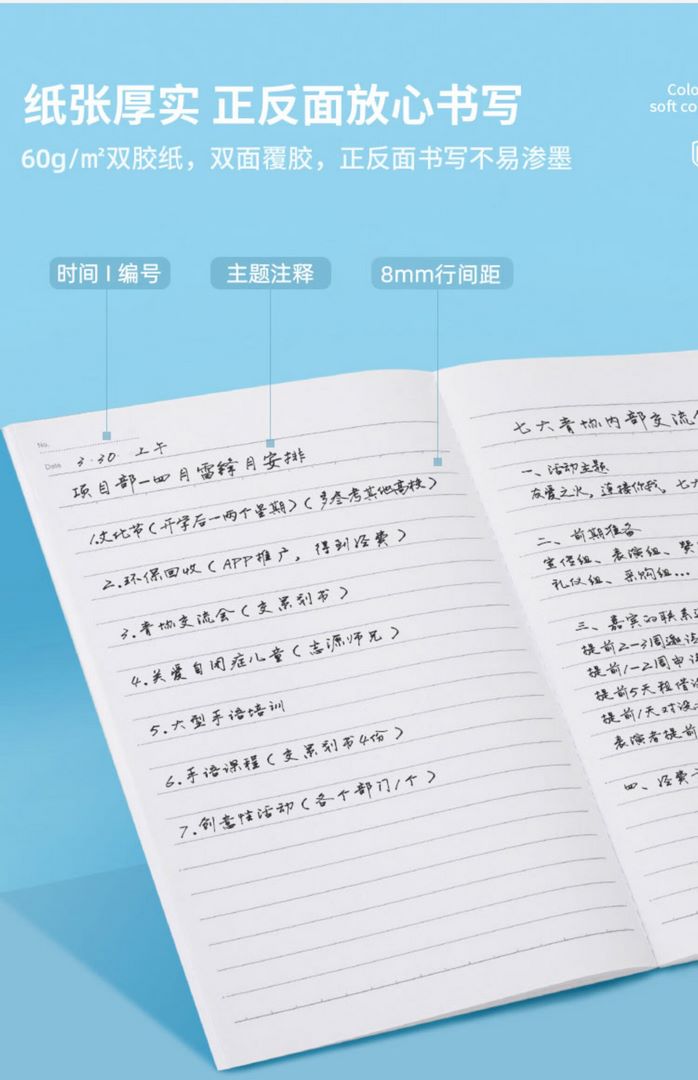 纸张厚实 正反面放心书写
60g/㎡双胶纸，双面覆胶，正反面书写不易渗墨
Colo
soft co
时间 | 编号
主题注释
8mm行间距
No.
Date 3.30. 上午
项目部—四月雷锋月安排
1.文化节(开学后一两个星期)(多参考其他高校)
2.环保回收(APP推广，得到经费)
3.青协交流会(交策划书)
4.关爱自闭症儿童(志源师兄)
5.大型手语培训
6.手语课程(交策划书4份)
7.创意性活动(各个部门1个)
七大青协内部交流
一、活动主题
友爱之火，连接你我，七
二、前期准备
宣传组、表演组、赞
礼仪组、采购组...
三、嘉宾的联系
提前2-3周邀请
提前1-2周申
提前5天租借
提前1天对
表演者提前
四、经费